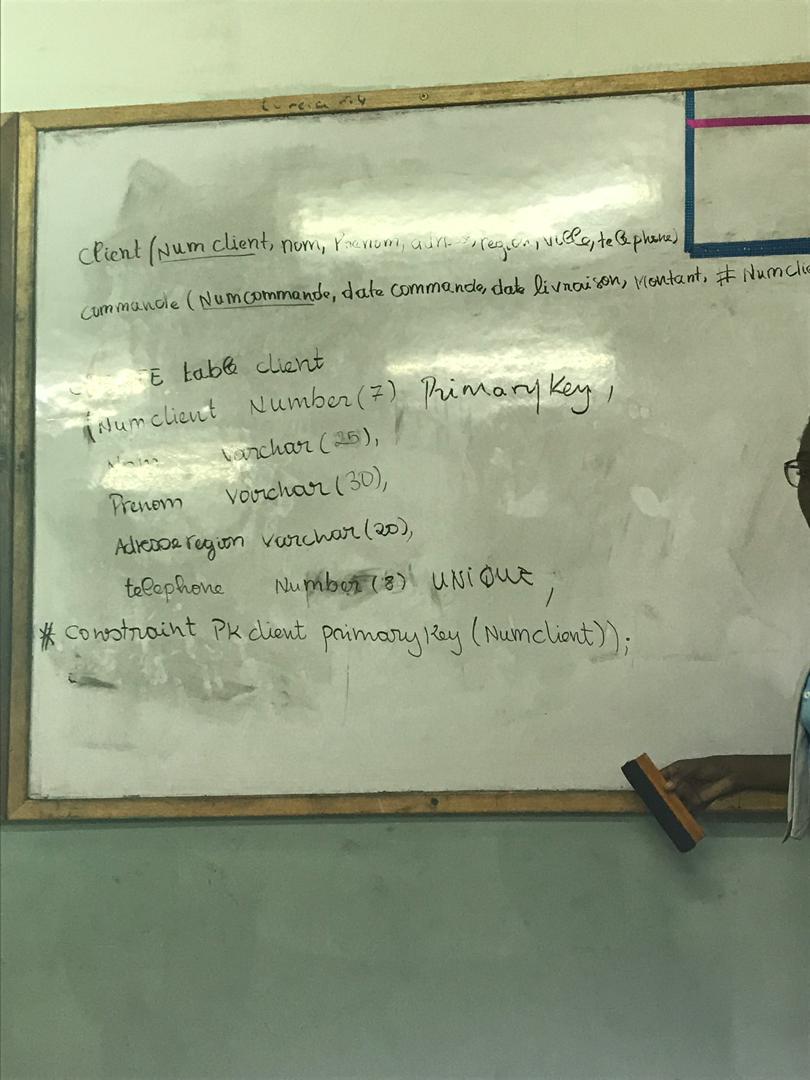 Client (Num client, nom, Prenom, region, ville, telephone)
commande (Numcommande, date commande, date livraison, Montant, # Numclie
E table client
(Numclient Number(7) Primary Key,
varchar(25),
Prenom varchar(30),
Adresse region varchar(20),
telephone Number(8) UNIQUE,
* constraint PK client primary key (Numclient));